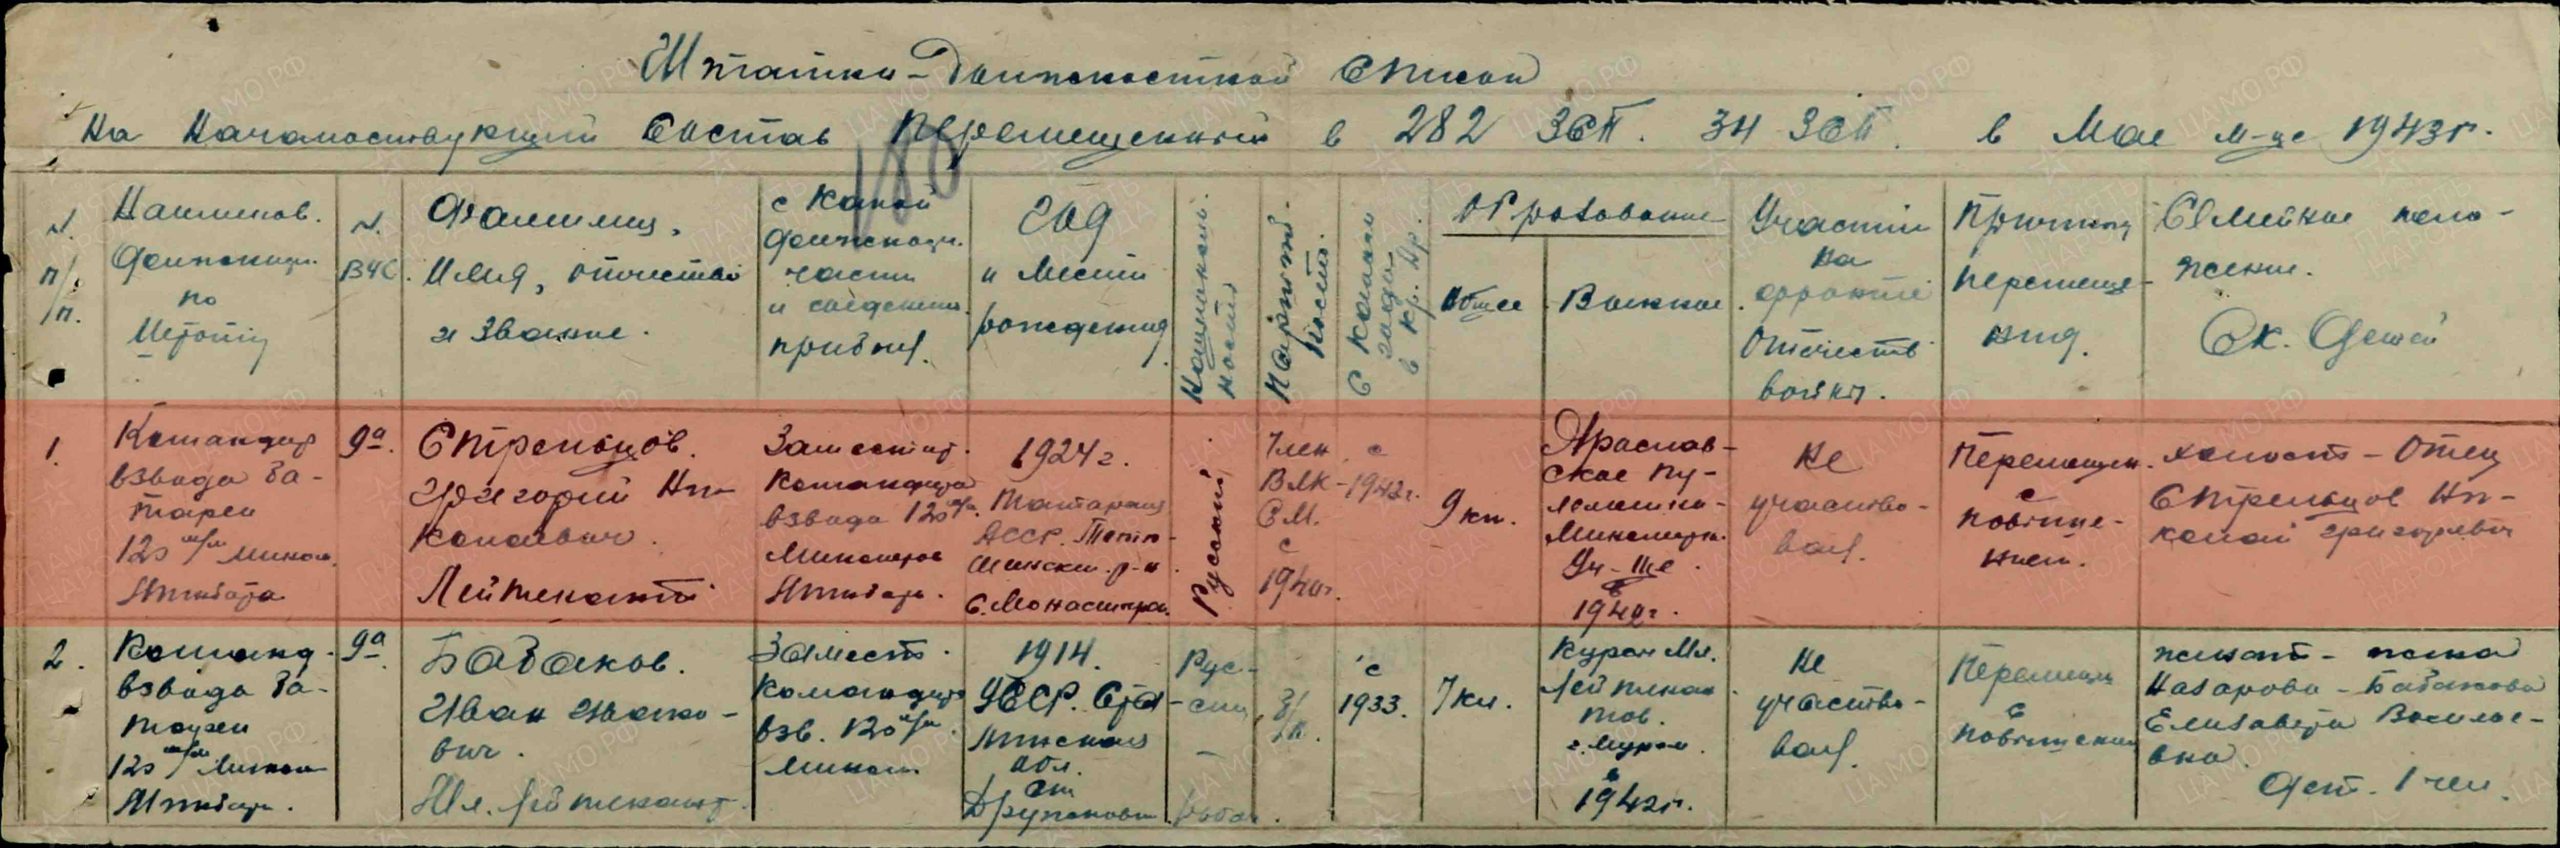 Штатно-Должностной Список
На Начальствующий Состав Перемещенный в 282 ЗСП. 34 ЗСП. в Мае м-це 1943г.
180
N. п/п.
Наименов.
должности
по
штату
N.
ВУС.
Фамилия,
Имя, отчество
и Звание.
с Какой
должности.
части
и соединен.
прибыл.
Год
и место
рождения
Национальность
Партийность.
С какого
года
в Кр. Ар.
Образование
Общее
Военное
Участие
на
фронте
Отечеств
войны.
Причины
перемеще-
ния.
Семейное поло-
жение.
Ск. Детей
1.
Командир
взвода ба-
тареи
120 м/м мином.
Штибатр
9а.
Стрельцов.
Григорий Ни-
колаевич.
Лейтенант
Заместит.
Командира
взвода 120 м/м.
Минометов
1924г.
Татарская
АССР.
р-н
с. Монастыр.
Русский
Член
ВЛК-
СМ.
с
1940г.
с
1942г.
9 кл.
Ярослав-
ское Пу-
леметно-
Минометн.
Уч-ще.
в
1942г.
Не
участво-
вал.
Перемещен.
с
повыше-
нием.
холост - Отец
Стрельцов Ни-
колай Григорьевич
2.
Команд.
взвода ба-
тареи
120 м/м мином
9а.
Бабаков.
Иван
вич.
Мл. Лейтенант.
Замест.
Командира
взв. 120 м/м.
мином.
1914.
УССР.
обл.
ст
Рус-
ский
б/п.
с
1933.
7 кл.
Курсы Мл.
Лейтенан
тов.
г. Муром.
в
1942г.
Не
участво-
вал.
Перемещ
с
повышением
женат - жена
Назарова - Бабакова
Елизавета Василье-
вна.
Дет. 1 чел.
ЦАМО РФ
ПАМЯТЬ
НАРОДА